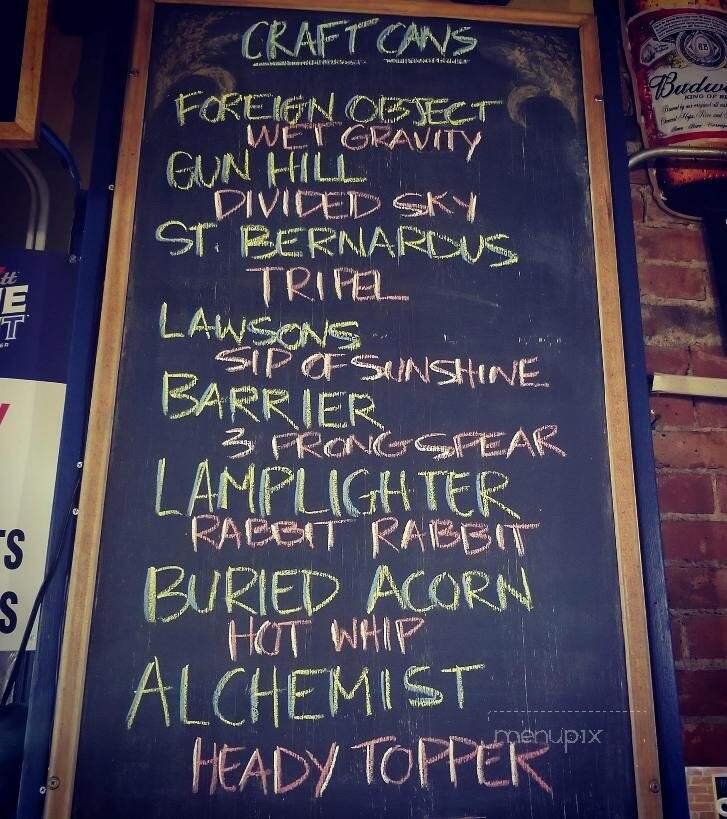 CRAFT CANS
FOREIGN OBJECT
WET GRAVITY
GUN HILL
DIVIDED SKY
ST. BERNARDUS
TRIPEL
LAWSONS
SIP OF SUNSHINE
BARRIER
3 PRONG SPEAR
LAMPLIGHTER
RABBIT RABBIT
BURIED ACORN
HOT WHIP
ALCHEMIST
HEADY TOPPER
menupix
Budw
KING OF